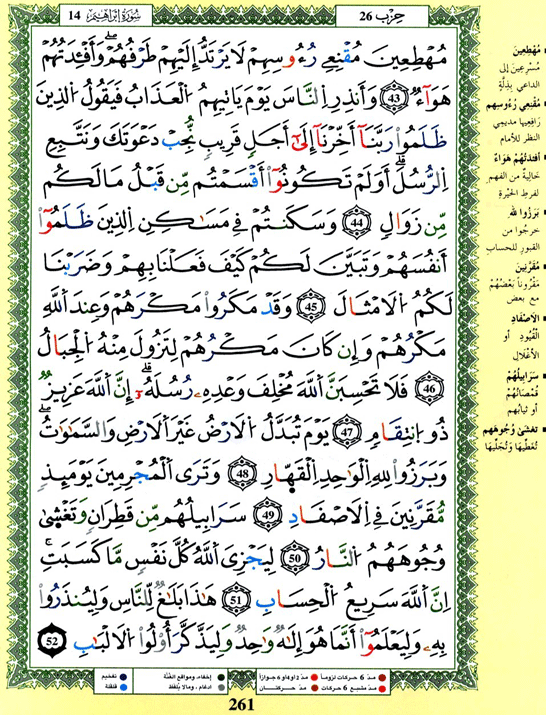 سُورَةُ إِبْرَاهِيم 14
حِزْب 26
مُهْطِعِينَ مُقْنِعِي رُءُوسِهِمْ لَا يَرْتَدُّ إِلَيْهِمْ طَرْفُهُمْ وَأَفْـِٕدَتُهُمْ
هَوَآءٌ 43 وَأَنذِرِ اِلنَّاسَ يَوْمَ يَاتِيهِمُ اُلْعَذَابُ فَيَقُولُ اُلذِينَ
ظَلَمُواْ رَبَّنَآ أَخِّرْنَآ إِلَىٰٓ أَجَلٖ قَرِيبٖ نُّجِبْ دَعْوَتَكَ وَنَتَّبِعِ
اِلرُّسُلَ أَوَلَمْ تَكُونُوٓاْ أَقْسَمْتُم مِّن قَبْلُ مَا لَكُم
مِّن زَوَالٖ 44 وَسَكَنتُمْ فِي مَسَٰكِنِ اِلذِينَ ظَلَمُوٓاْ
أَنفُسَهُمْ وَتَبَيَّنَ لَكُمْ كَيْفَ فَعَلْنَا بِهِمْ وَضَرَبْنَا
لَكُمُ اُلَامْثَالَ 45 وَقَدْ مَكَرُواْ مَكْرَهُمْ وَعِندَ اَللَّهِ
مَكْرُهُمْ وَإِن كَانَ مَكْرُهُمْ لِتَزُولَ مِنْهُ اُلْجِبَالُ
46 فَلَا تَحْسِبَنَّ اَللَّهَ مُخْلِفَ وَعْدِهِۦ رُسُلَهُۥٓ إِنَّ اَللَّهَ عَزِيزٞ
ذُو اُنتِقَامٖ 47 يَوْمَ تُبَدَّلُ اُلَارْضُ غَيْرَ اَلَارْضِ وَالسَّمَٰوَٰتُ
وَبَرَزُواْ لِلهِ اِلْوَٰحِدِ اِلْقَهَّارِ 48 وَتَرَى اَلْمُجْرِمِينَ يَوْمَئِذٖ
مُّقَرَّنِينَ فِي اِلَاصْفَادِ 49 سَرَابِيلُهُم مِّن قَطِرَانٖ وَتَغْشَىٰ
وُجُوهَهُمُ اُلنَّارُ 50 لِيَجْزِيَ اَللَّهُ كُلَّ نَفْسٖ مَّا كَسَبَتِ
اِنَّ اَللَّهَ سَرِيعُ اُلْحِسَابِ 51 هَٰذَا بَلَٰغٞ لِّلنَّاسِ وَلِيُنذَرُواْ
بِهِۦ وَلِيَعْلَمُوٓاْ أَنَّمَا هُوَ إِلَٰهٞ وَٰحِدٞ وَلِيَذَّكَّرَ أُوْلُواْ اُلَالْبَٰبِ 52
مُهْطِعِينَ
مُسْرِعِينَ إلى
الداعي بذِلَّةٍ
مُقْنِعِي رُءُوسِهِم
رَافِعِيهَا مديمي
النظر للأمام
أفئدتُهُمْ هَوَاءٌ
خاليةٌ من الفهم
لفرطِ الحَيْرةِ
بَرَزُوا للهِ
خرجُوا من
القبورِ للحساب
مُقَرَّنِينَ
مَقْرُوناً بَعْضُهُمْ
مع بعضٍ
الاَصْفَادِ
القُيُودِ أو
الأغْلَال
سَرَابِيلُهُمْ
قُمْصَانُهُمْ
أو ثيابُهم
تَغْشَى وُجُوهَهم
تُغَطِّيهَا وتُجَلِّلُهَا
مدّ 6 حركات لزوماً
مدّ 2 أو 4 أو 6 جوازاً
إخفاء، ومواقع الغُنَّة
تفخيم
مدّ مشبع 6 حركات
مدّ حركتان
إدغام، وما لا يُلفَظ
قلقلة
261